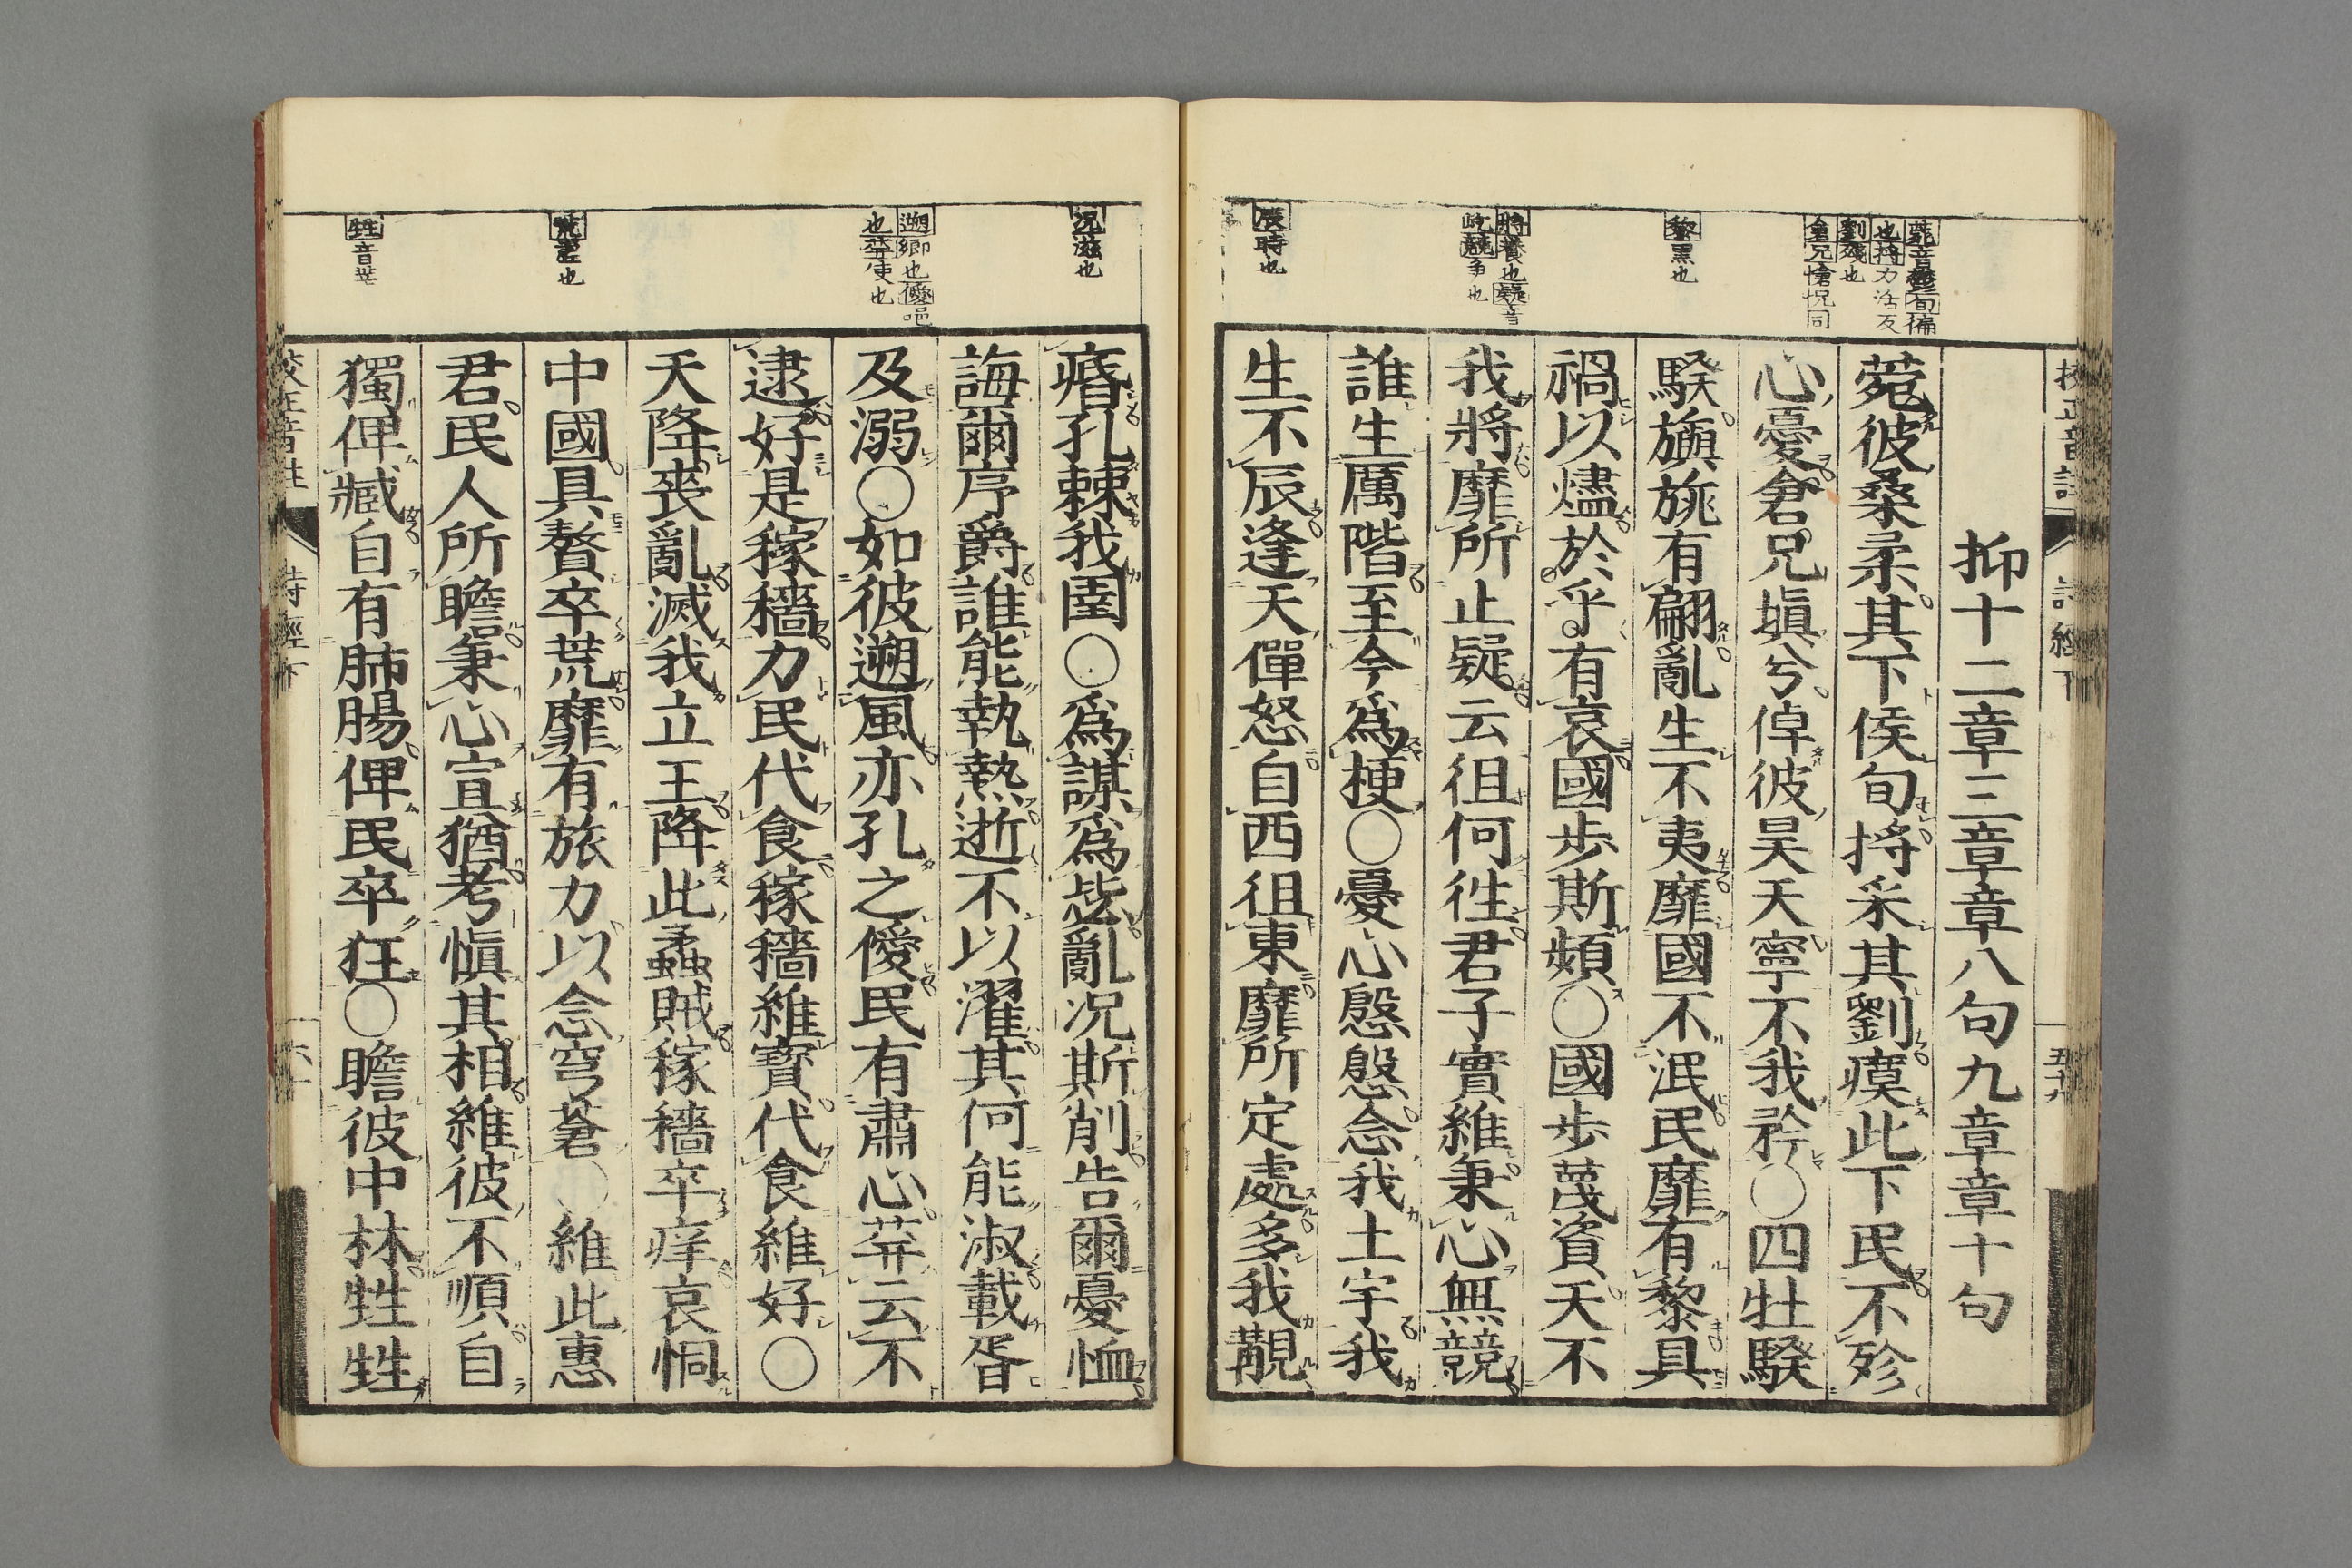 菀音鬱旬徧
也捋力活反
劉殘也
倉兄愴怳同
黎黒也
將養也疑音
屹競争也
辰時也
抑十二章三章章八句九章章十句
菀彼桑柔其下侯旬捋采其劉瘼此下民不殄
心憂倉兄塡兮倬彼昊天寧不我矜○四牡騤
騤旟旐有翩亂生不夷靡國不泯民靡有黎具
禍以燼於乎有哀國步斯頻○國步蔑資天不
我將靡所止疑云徂何徃君子實維秉心無競
誰生厲階至今爲梗○憂心慇慇念我土宇我
生不辰逢天僤怒自西徂東靡所定處多我覯
況滋也
遡鄉也僾唈
也荓使也
荒虛也
甡音莘
痻孔棘我圉○爲謀爲毖亂況斯削告爾憂恤
誨爾序爵誰能執熱逝不以濯其何能淑載胥
及溺○如彼遡風亦孔之僾民有肅心荓云不
逮好是稼穡力民代食稼穡維寶代食維好○
天降喪亂滅我立王降此蟊賊稼穡卒痒哀恫
中國具贅卒荒靡有旅力以念穹蒼○維此惠
君民人所瞻秉心宣猶考愼其相維彼不順自
獨俾臧自有肺腸俾民卒狂○瞻彼中林甡甡